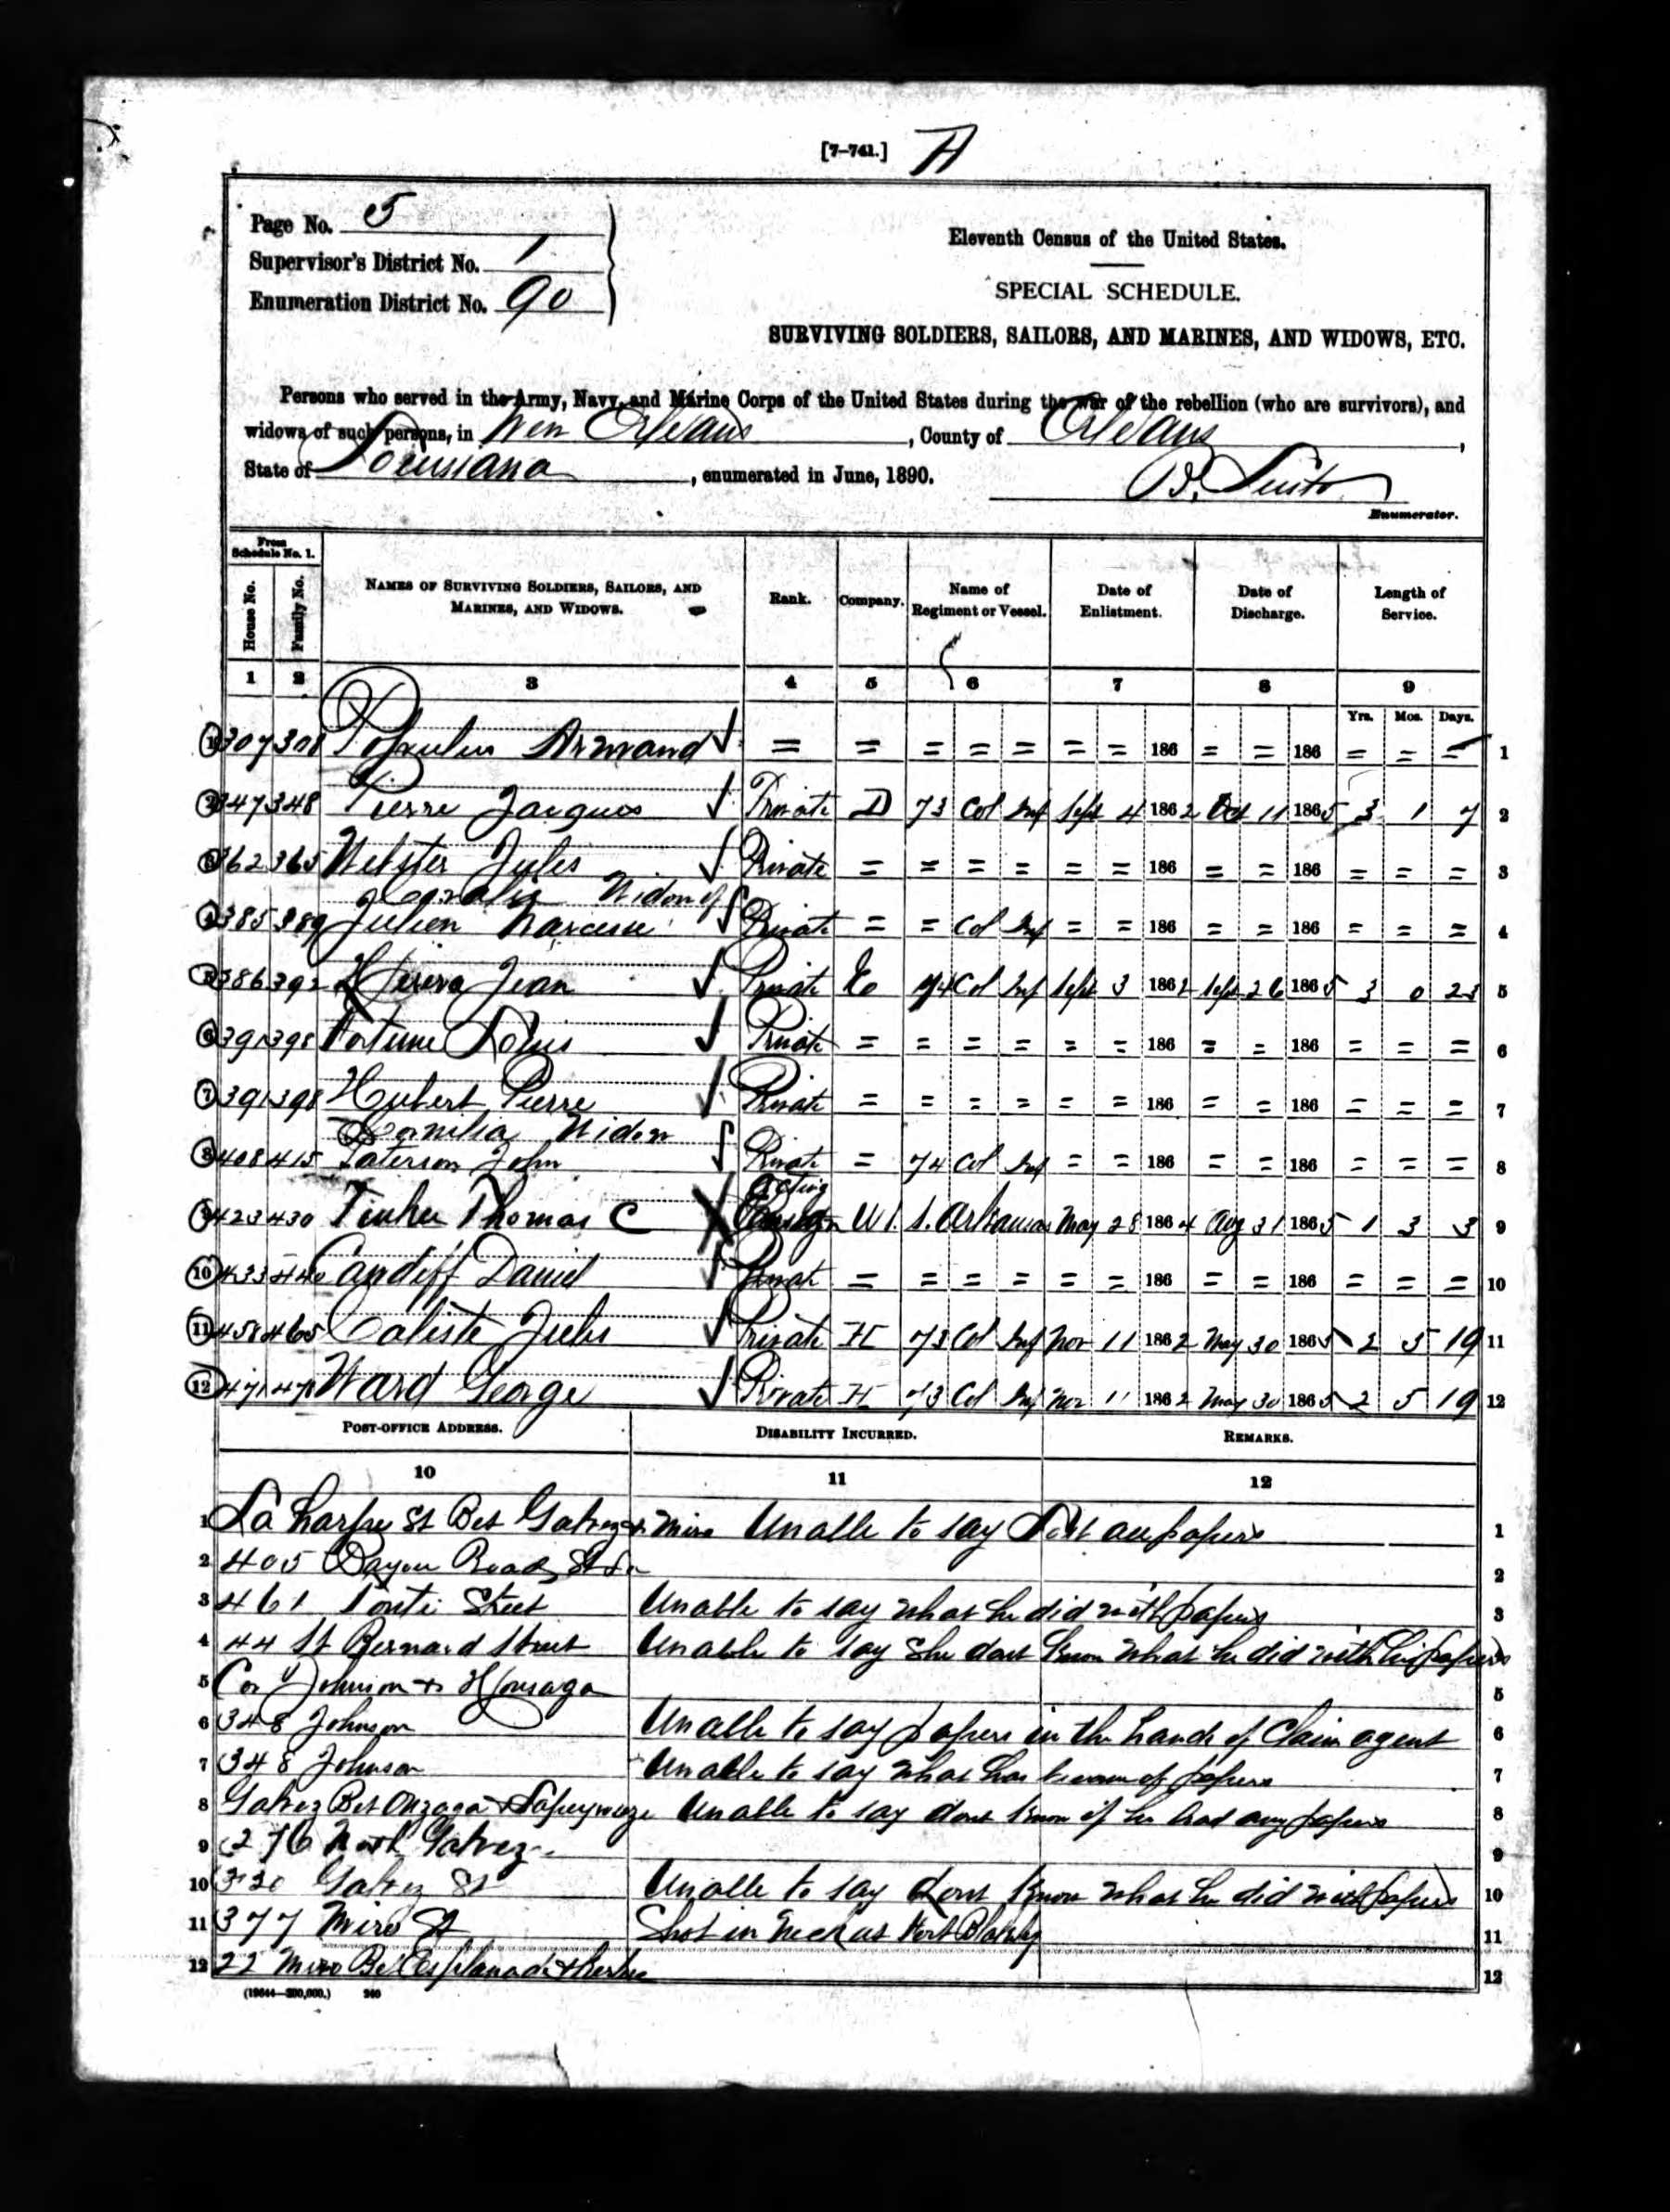 [7-741.] A
Page No. 5
Supervisor's District No. 1
Enumeration District No. 90
Eleventh Census of the United States.
SPECIAL SCHEDULE.
SURVIVING SOLDIERS, SAILORS, AND MARINES, AND WIDOWS, ETC.
Persons who served in the Army, Navy, and Marine Corps of the United States during the war of the rebellion (who are survivors), and
widows of such persons, in New Orleans, County of Orleans,
State of Louisiana, enumerated in June, 1890.
B.
Enumerator.
From Schedule No. 1.
House No. Family No. NAMES OF SURVIVING SOLDIERS, SAILORS, AND MARINES, AND WIDOWS. Rank. Company. Name of Regiment or Vessel. Date of Enlistment. Date of Discharge. Length of Service.
1 2 3 4 5 6 7 8 9
Yrs. Mos. Days.
1 307 308 Populus Armand = = = = = = = 186 = = 186 = = = 1
2 347 348 Pierre Jacques Private D 73 Col Inf Sept 4 1862 Oct 11 1865 3 1 7 2
3 362 365 Webster Jules Private = = = = = = 186 = = 186 = = = 3
Widow of
4 385 389 Julien Narcisse Private = = Col Inf = = 186 = = 186 = = = 4
5 386 392 Jean Private Co 74 Col Inf Sept 3 1862 Sept 26 1865 3 0 23 5
6 391 398 Fortune Louis Private = = = = = = 186 = = 186 = = = 6
7 391 398 Hubert Pierre Private = = = = = = 186 = = 186 = = = 7
Widow
8 408 415 Paterson John Private = 74 Col Inf = = 186 = = 186 = = = 8
Acting
9 423 430 Thomas C Ensign U. S. Arkansas May 28 1864 Aug 31 1865 1 3 3 9
10 433 440 Candiff Daniel Privat = = = = = = 186 = = 186 = = = 10
11 458 465 Caliste Jules Private H 73 Col Inf Nov 11 1862 May 30 1865 2 5 19 11
12 471 478 Ward George Private H 73 Col Inf Nov 11 1862 May 30 1865 2 5 19 12
POST-OFFICE ADDRESS. DISABILITY INCURRED. REMARKS.
10 11 12
1 La harpe St Bet Galvez & Miro Unable to say Lost all papers 1
2 405 Bayou Road St 2
3 461 Street Unable to say what he did with papers 3
4 44 St Bernard Street Unable to say She dont know what he did with his papers 4
5 Cor Johnson & 5
6 348 Johnson Unable to say papers in the hands of Claim agent 6
7 348 Johnson Unable to say what has become of papers 7
8 Galvez Bet Onzaga & Unable to say dont know if he had any papers 8
9 276 North Galvez 9
10 330 Galvez St Unable to say dont know what he did with papers 10
11 377 Miro St Shot in neck at Fort Blakely 11
12 22 Miro Bet Esplanade & 12
(19644—200,000.) 240